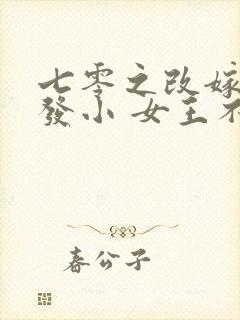 七零之改嫁
發小 女主不
春公子